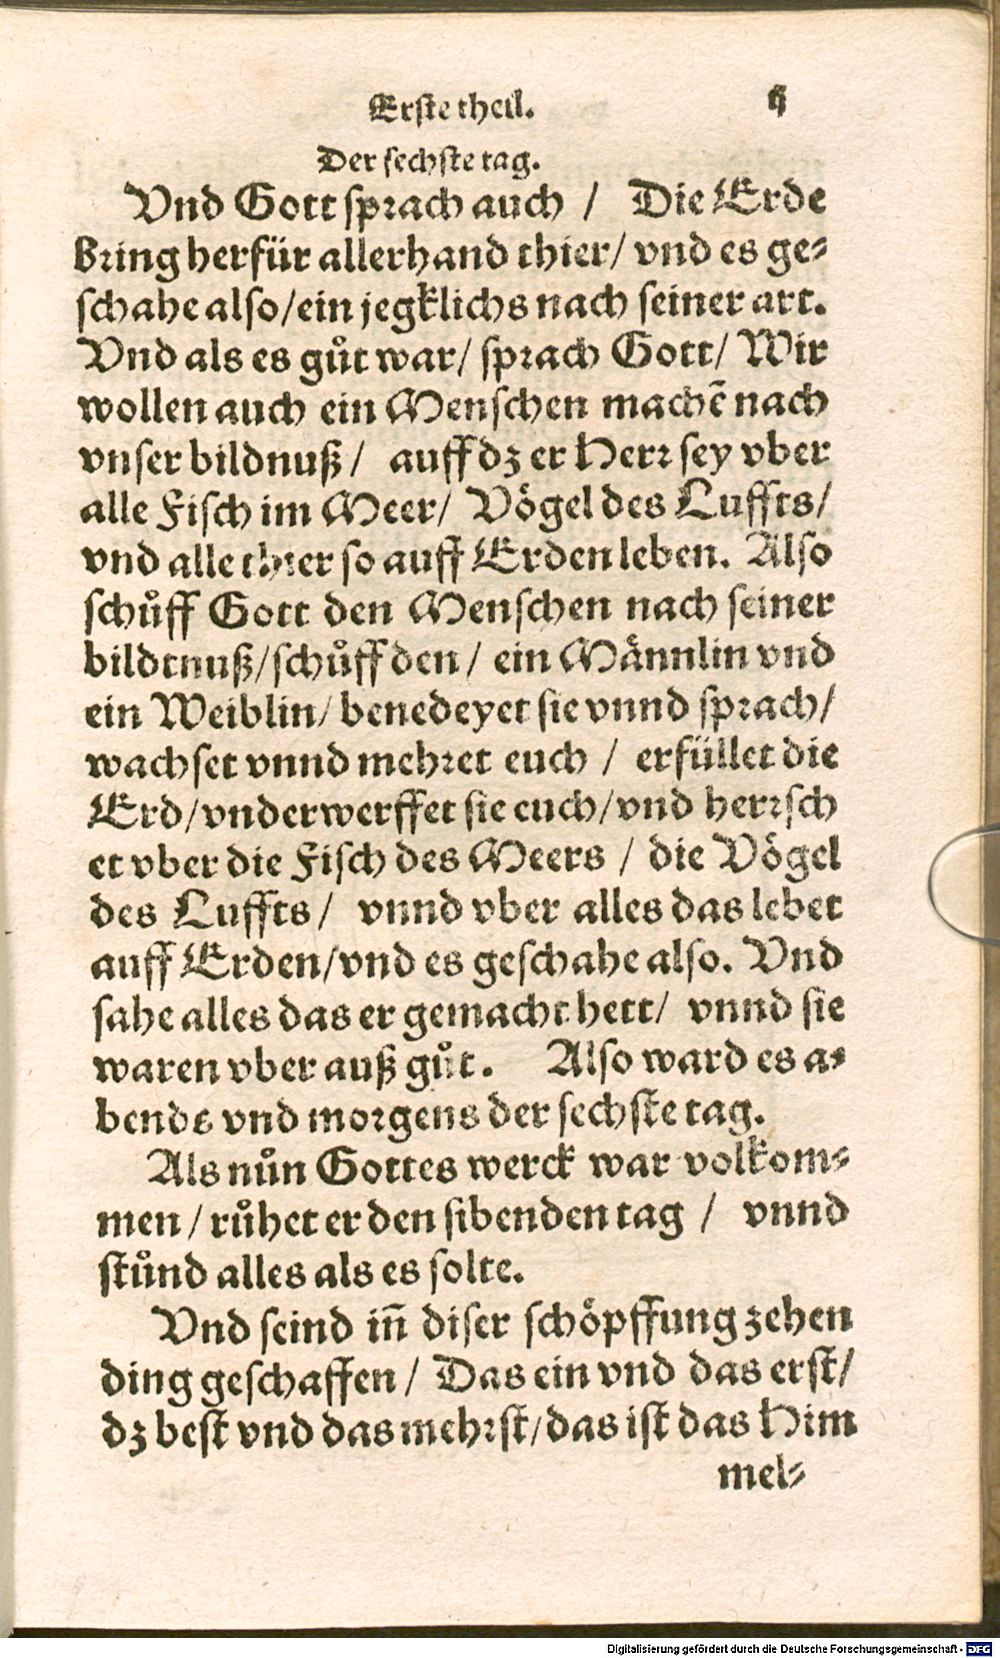 Erste theil.
Der sechste tag.
Vnd Gott sprach auch / Die Erde
Bring herfür allerhand thier/ vnd es ge⸗
schahe also/ein jegklichs nach seiner art.
Vnd als es gůt war/ sprach Gott/ Wir
wollen auch ein Menschen machē nach
vnser bildnuß/ auff dz er Herr sey vber
alle Fisch im Meer/ Vögel des Luffts/
vnd alle thier so auff Erden leben. Also
schůff Gott den Menschen nach seiner
bildtnuß/schůff den/ ein Männlin vnd
ein Weiblin/ benedeyet sie vnnd sprach/
wachset vnnd mehret euch / erfüllet die
Erd/vnderwerffet sie euch/vnd herrsch
et vber die Fisch des Meers / die Vögel
des Luffts/ vnnd vber alles das lebet
auff Erden/vnd es geschahe also. Vnd
sahe alles das er gemacht hett/ vnnd sie
waren vber auß gůt. Also ward es a⸗
bends vnd morgens der sechste tag.
Als nůn Gottes werck war volkom⸗
men / růhet er den sibenden tag / vnnd
stůnd alles als es solte.
Vnd seind iñ diser schöpffung zehen
ding geschaffen / Das ein vnd das erst/
dz best vnd das mehrst/das ist das Him
mel⸗
Digitalisierung gefördert durch die Deutsche Forschungsgemeinschaft - DFG